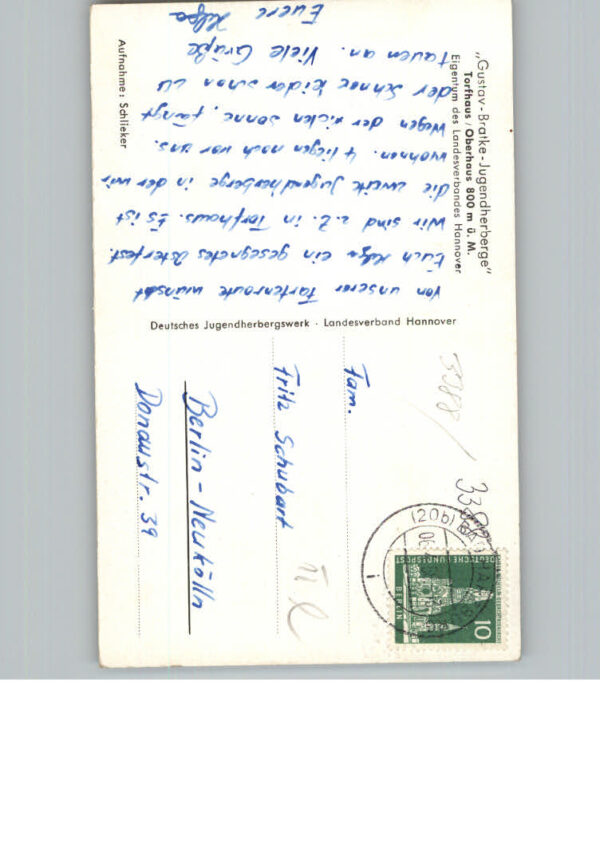 „Gustav-Bratke-Jugendherberge"
Torfhaus / Oberhaus 800 m ü. M.
Eigentum des Landesverbandes Hannover
Aufnahme: Schlieker
Von unserer Fartenroute wünscht
Euch Helga ein gesegnetes Osterfest.
Wir sind z.Z. in Torfhaus. Es ist
die zweite Jugendherberge in der wir
wohnen. 4 liegen noch vor uns.
Wegen der vielen Sonne, fängt
der Schnee leider schon zu
tauen an. Viele Grüße
Euere Helga
Deutsches Jugendherbergswerk · Landesverband Hannover
Fam.
Fritz Schubart
Berlin-Neukölln
Donaustr. 39
3388/
(20b) BAD
DEUTSCHE BUNDESPOST
BERLIN
10